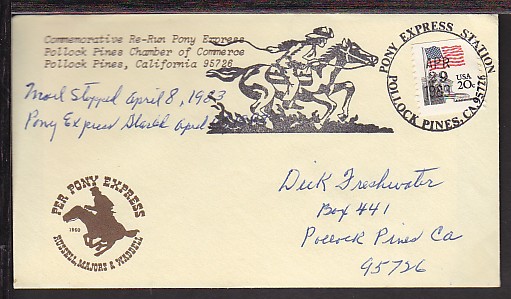 Commemorative Re-Run Pony Express
Pollock Pines Chamber of Commerce
Pollock Pines, California 95726
Mail Stopped April 8, 1983
Pony Express Started April
PONY EXPRESS STATION
APR
29
1983
POLLOCK PINES, CA 95726
USA
20c
PER PONY EXPRESS
1860
RUSSELL, MAJORS & WADDELL
Dick Freshwater
Box 441
Pollock Pines Ca
95726